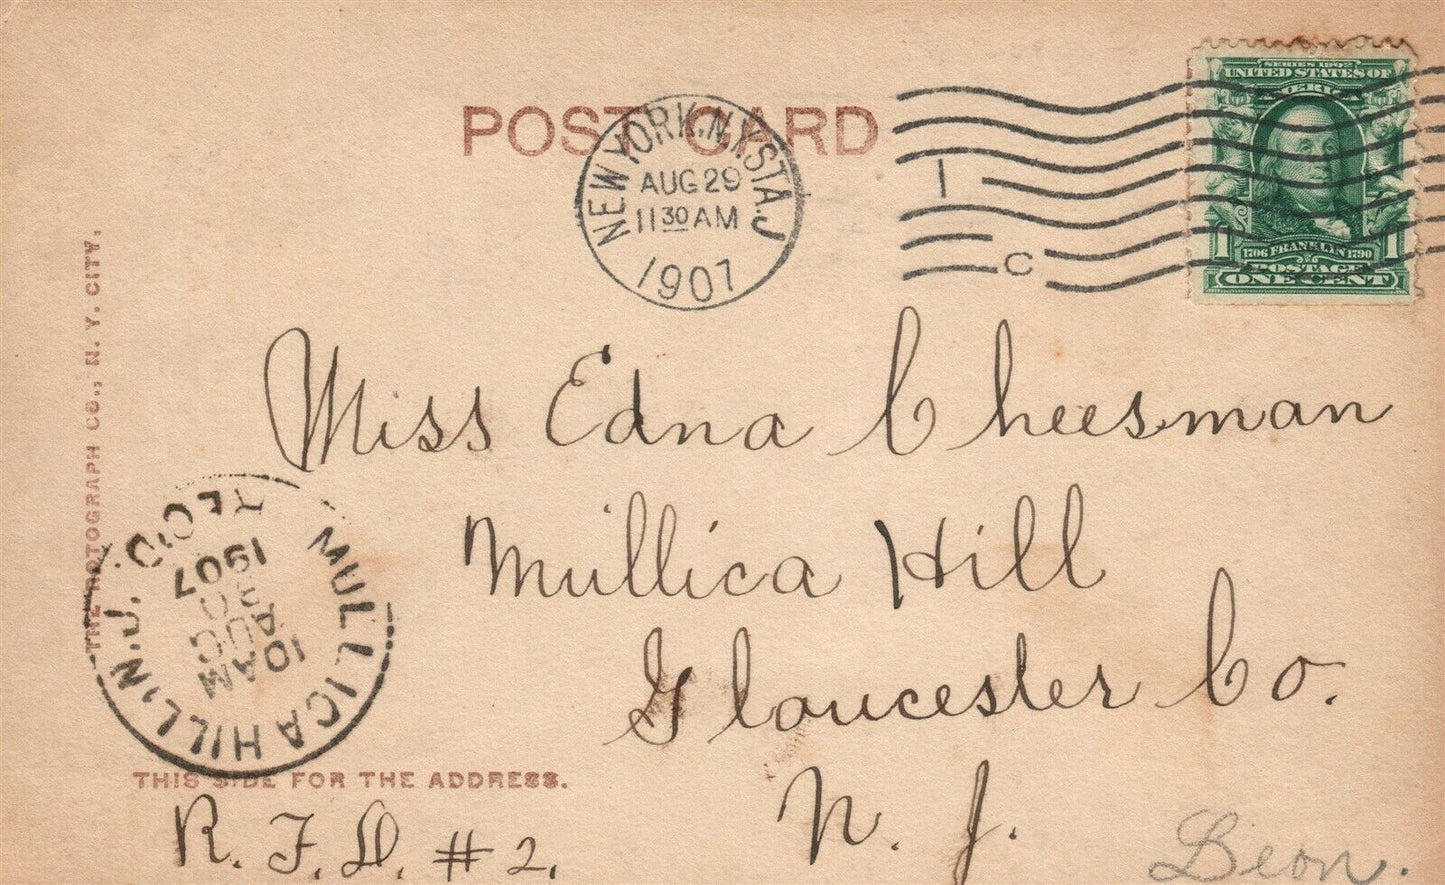 POST CARD
NEW YORK, N.Y. STA. J
AUG 29
11 30 AM
1907
1
C
SERIES 1902
UNITED STATES OF
AMERICA
1706 FRANKLIN 1790
1 1
POSTAGE
ONE CENT
THE ROTOGRAPH CO., N. Y. CITY.
Miss Edna Cheesman
Mullica Hill
Gloucester Co.
N. J.
R. F. D. #2.
MULLICA HILL, N.J.
REC'D
10 AM
AUG
30
1907
THIS SIDE FOR THE ADDRESS.